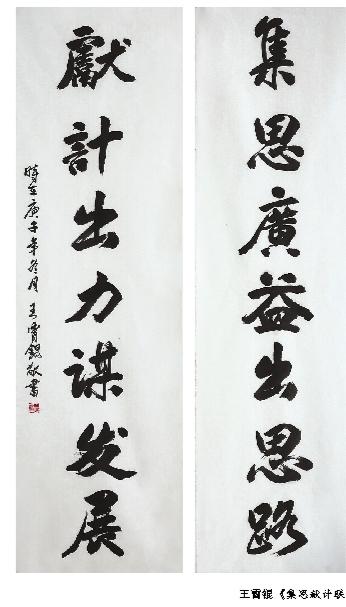 集思廣益出思路
獻計出力謀发展
時在庚子年冬月 王霄錕敬書
王霄锟《集思献计联